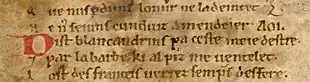 ue nus perduns lonur ne la deintet
e nus seiuns cunduit a mendeier Aoi.
Dist blancandrins pa ceste meie destre
par la barbe ki al piz me ventelet
ost des franceis verrez sempres desfere